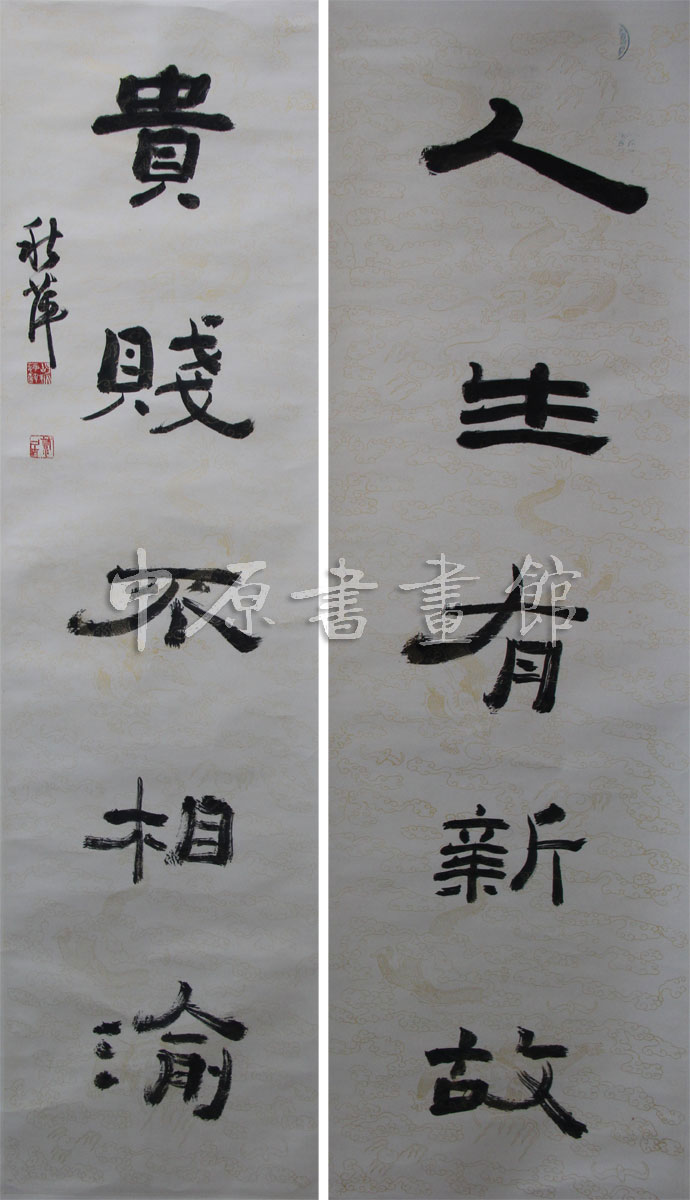 人生有新故
貴賤不相渝
秋萍
中原書畫館